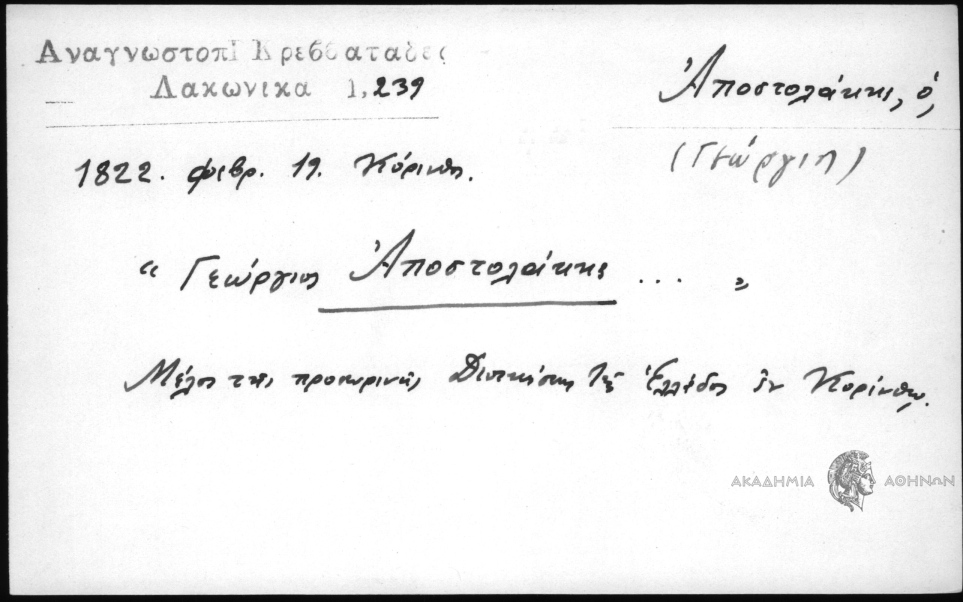 Αναγνωστοπ Κρεββαταδες
Λακωνικα 1,239
Ἀποστολάκης, ὁ,
(Γεώργιος)
1822. Φεβρ. 19. Κόρινθος.
“ Γεώργιος Ἀποστολάκης ... „
Μέλος τῆς προσωρινῆς Διοικήσεως τῆς Ἑλλάδος ἐν Κορίνθῳ.
ΑΚΑΔΗΜΙΑ ΑΘΗΝΩΝ